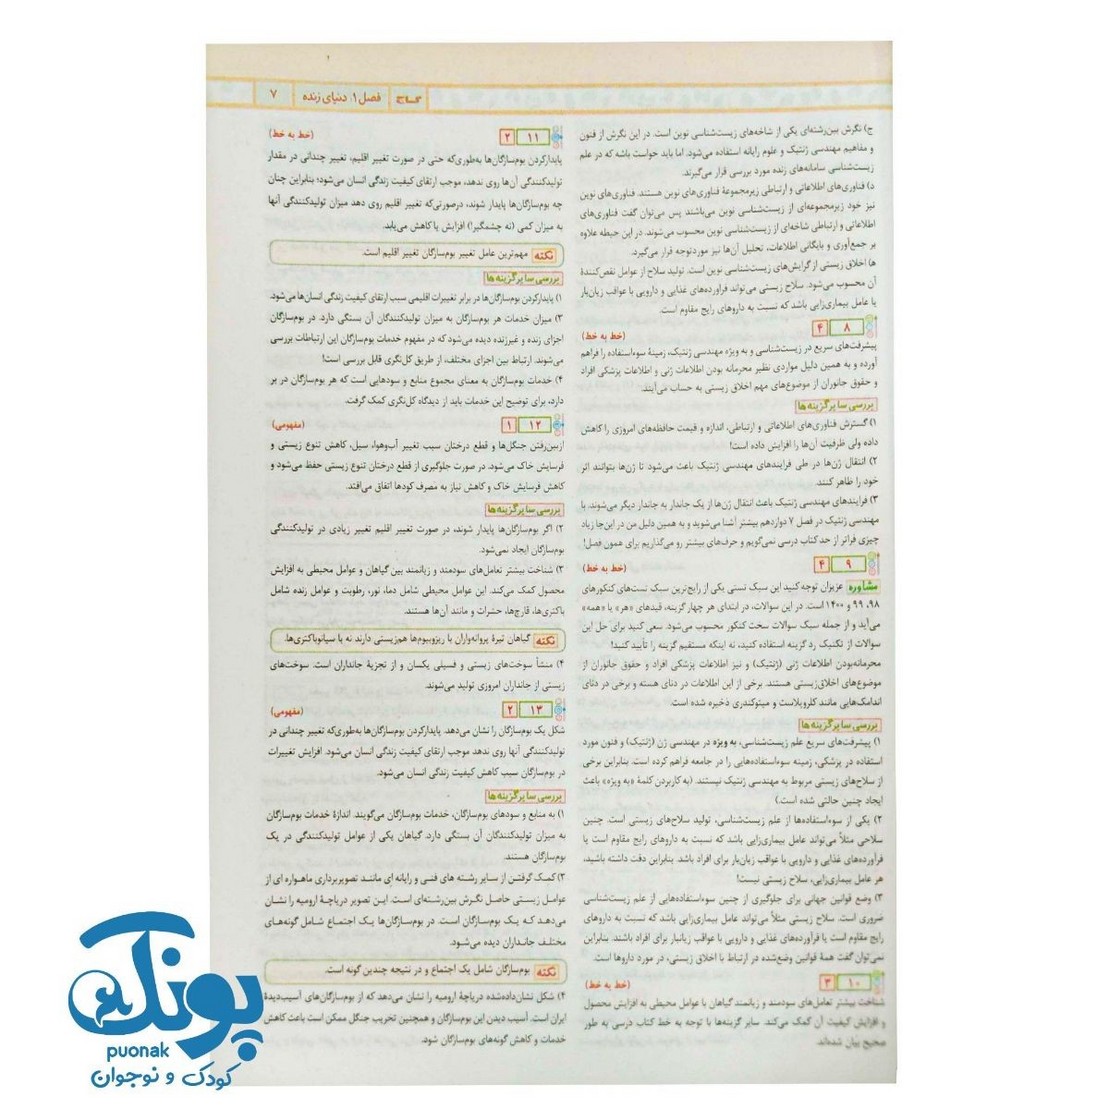 گاج فصل ۱: دنیای زنده ۷
ج) نگرش بین‌رشته‌ای یکی از شاخه‌های زیست‌شناسی نوین است. در این نگرش از فنون
و مفاهیم مهندسی ژنتیک و علوم رایانه استفاده می‌شود. اما باید حواست باشه که در علم
زیست‌شناسی سامانه‌های زنده مورد بررسی قرار می‌گیرند.
د) فناوری‌های اطلاعاتی و ارتباطی زیرمجموعهٔ فناوری‌های نوین هستند. فناوری‌های نوین
نیز خود زیرمجموعه‌ای از زیست‌شناسی نوین می‌باشند پس می‌توان گفت فناوری‌های
اطلاعاتی و ارتباطی شاخه‌ای از زیست‌شناسی نوین محسوب می‌شوند. در این حیطه علاوه
بر جمع‌آوری و بایگانی اطلاعات، تحلیل آن‌ها نیز موردتوجه قرار می‌گیرد.
ه) اخلاق زیستی از گرایش‌های زیست‌شناسی نوین است. تولید سلاح از عوامل نقض‌کنندهٔ
آن محسوب می‌شود. سلاح زیستی می‌تواند فرآورده‌های غذایی و دارویی با عواقب زیان‌بار
یا عامل بیماری‌زایی باشد که نسبت به داروهای رایج مقاوم است.
۸ ۴ (خط به خط)
پیشرفت‌های سریع در زیست‌شناسی و به ویژه مهندسی ژنتیک، زمینهٔ سوءاستفاده را فراهم
آورده و به همین دلیل مواردی نظیر محرمانه بودن اطلاعات ژنی و اطلاعات پزشکی افراد
و حقوق جانوران از موضوع‌های مهم اخلاق زیستی به حساب می‌آیند.
بررسی سایر گزینه‌ها
۱) گسترش فناوری‌های اطلاعاتی و ارتباطی، اندازه و قیمت حافظه‌های امروزی را کاهش
داده ولی ظرفیت آن‌ها را افزایش داده است!
۲) انتقال ژن‌ها در طی فرایندهای مهندسی ژنتیک باعث می‌شود تا ژن‌ها بتوانند اثر
خود را ظاهر کنند.
۳) فرایندهای مهندسی ژنتیک باعث انتقال ژن‌ها از یک جاندار به جاندار دیگر می‌شوند. با
مهندسی ژنتیک در فصل ۷ دوازدهم بیشتر آشنا می‌شوید و به همین دلیل من در این‌جا زیاد
چیزی فراتر از حد کتاب درسی نمی‌گویم و حرف‌های بیشتر رو می‌گذاریم برای همون فصل!
۹ ۴ (خط به خط)
مشاوره عزیزان توجه کنید این سبک تستی یکی از رایج‌ترین سبک تست‌های کنکورهای
۹۸، ۹۹ و ۱۴۰۰ است. در این سوالات، در ابتدای هر چهار گزینه، قیدهای «هر» یا «همه»
می‌آید و از جمله سبک سوالات سخت کنکور محسوب می‌شود. سعی کنید برای حل این
سوالات از تکنیک رد گزینه استفاده کنید، نه اینکه مستقیم گزینه را تأیید کنید!
محرمانه‌بودن اطلاعات ژنی (ژنتیک) و نیز اطلاعات پزشکی افراد و حقوق جانوران از
موضوع‌های اخلاق‌زیستی هستند. برخی از این اطلاعات در دنای هسته و برخی در دنای
اندامک‌هایی مانند کلروپلاست و میتوکندری ذخیره شده است.
بررسی سایر گزینه‌ها
۱) پیشرفت‌های سریع علم زیست‌شناسی، به ویژه در مهندسی ژن (ژنتیک) و فنون مورد
استفاده در پزشکی، زمینه سوءاستفاده‌هایی را در جامعه فراهم کرده است. بنابراین برخی
از سلاح‌های زیستی مربوط به مهندسی ژنتیک نیستند. (به کاربردن کلمهٔ «به ویژه» باعث
ایجاد چنین حالتی شده است.)
۲) یکی از سوءاستفاده‌ها از علم زیست‌شناسی، تولید سلاح‌های زیستی است. چنین
سلاحی مثلاً می‌تواند عامل بیماری‌زایی باشد که نسبت به داروهای رایج مقاوم است یا
فرآورده‌های غذایی و دارویی با عواقب زیان‌بار برای افراد باشد. بنابراین دقت داشته باشید،
هر عامل بیماری‌زایی، سلاح زیستی نیست!
۳) وضع قوانین جهانی برای جلوگیری از چنین سوءاستفاده‌هایی از علم زیست‌شناسی
ضروری است. سلاح زیستی مثلاً می‌تواند عامل بیماری‌زایی باشد که نسبت به داروهای
رایج مقاوم است یا فرآورده‌های غذایی و دارویی با عواقب زیانبار برای افراد باشند. بنابراین
نمی‌توان گفت همهٔ قوانین وضع‌شده در ارتباط با اخلاق زیستی، در مورد داروها است.
۱۰ ۳ (خط به خط)
شناخت بیشتر تعامل‌های سودمند و زیانمند گیاهان با عوامل محیطی به افزایش محصول
و افزایش کیفیت آن کمک می‌کند. سایر گزینه‌ها با توجه به خط کتاب درسی به طور
صحیح بیان شده‌اند.
۱۱ ۲ (خط به خط)
پایدارکردن بوم‌سازگان‌ها به‌طوری‌که حتی در صورت تغییر اقلیم، تغییر چندانی در مقدار
تولیدکنندگی آن‌ها روی ندهد، موجب ارتقای کیفیت زندگی انسان می‌شود؛ بنابراین چنان
چه بوم‌سازگان‌ها پایدار شوند، درصورتی‌که تغییر اقلیم روی دهد میزان تولیدکنندگی آنها
به میزان کمی (نه چشمگیر!) افزایش یا کاهش می‌یابد.
نکته مهم‌ترین عامل تغییر بوم‌سازگان تغییر اقلیم است.
بررسی سایر گزینه‌ها
۱) پایدارکردن بوم‌سازگان‌ها در برابر تغییرات اقلیمی سبب ارتقای کیفیت زندگی انسان‌ها می‌شود.
۳) میزان خدمات هر بوم‌سازگان به میزان تولیدکنندگان آن بستگی دارد. در بوم‌سازگان
اجزای زنده و غیرزنده دیده می‌شود که در مفهوم خدمات بوم‌سازگان این ارتباطات بررسی
می‌شوند. ارتباط بین اجزای مختلف، از طریق کل‌نگری قابل بررسی است!
۴) خدمات بوم‌سازگان به معنای مجموع منابع و سودهایی است که هر بوم‌سازگان در بر
دارد، برای توضیح این خدمات باید از دیدگاه کل‌نگری کمک گرفت.
۱۲ ۱ (مفهومی)
ازبین‌رفتن جنگل‌ها و قطع درختان سبب تغییر آب‌وهوا، سیل، کاهش تنوع زیستی و
فرسایش خاک می‌شود. در صورت جلوگیری از قطع درختان تنوع زیستی حفظ می‌شود و
کاهش فرسایش خاک و کاهش نیاز به مصرف کودها اتفاق می‌افتد.
بررسی سایر گزینه‌ها
۲) اگر بوم‌سازگان‌ها پایدار شوند، در صورت تغییر اقلیم تغییر زیادی در تولیدکنندگی
بوم‌سازگان ایجاد نمی‌شود.
۳) شناخت بیشتر تعامل‌های سودمند و زیانمند بین گیاهان و عوامل محیطی به افزایش
محصول کمک می‌کند. این عوامل محیطی شامل دما، نور، رطوبت و عوامل زنده شامل
باکتری‌ها، قارچ‌ها، حشرات و مانند آن‌ها هستند.
نکته گیاهان تیرهٔ پروانه‌واران با ریزوبیوم‌ها هم‌زیستی دارند نه با سیانوباکتری‌ها.
۴) منشأ سوخت‌های زیستی و فسیلی یکسان و از تجزیهٔ جانداران است. سوخت‌های
زیستی از جانداران امروزی تولید می‌شوند.
۱۳ ۲ (مفهومی)
شکل یک بوم‌سازگان را نشان می‌دهد. پایدارکردن بوم‌سازگان‌ها به‌طوری‌که تغییر چندانی در
تولیدکنندگی آنها روی ندهد موجب ارتقای کیفیت زندگی انسان می‌شود. افزایش تغییرات
در بوم‌سازگان سبب کاهش کیفیت زندگی انسان می‌شود.
بررسی سایر گزینه‌ها
۱) به منابع و سودهای بوم‌سازگان، خدمات بوم‌سازگان می‌گویند. اندازهٔ خدمات بوم‌سازگان
به میزان تولیدکنندگان آن بستگی دارد. گیاهان یکی از عوامل تولیدکنندگی در یک
بوم‌سازگان هستند.
۳) کمک گرفتن از سایر رشته های فنی و رایانه ای مانند تصویربرداری ماهواره ای از
عوامل زیستی حاصل نگرش بین‌رشته‌ای است. این تصویر دریاچهٔ ارومیه را نشان
می‌دهد که یک بوم‌سازگان است. در بوم‌سازگان‌ها یک اجتماع شامل گونه‌های
مختلف جانداران دیده می‌شود.
نکته بوم‌سازگان شامل یک اجتماع و در نتیجه چندین گونه است.
۴) شکل نشان‌داده‌شده دریاچهٔ ارومیه را نشان می‌دهد که از بوم‌سازگان‌های آسیب‌دیدهٔ
ایران است. آسیب دیدن این بوم‌سازگان و همچنین تخریب جنگل ممکن است باعث کاهش
خدمات و کاهش گونه‌های بوم‌سازگان شود.
پونک
puonak
کودک و نوجوان